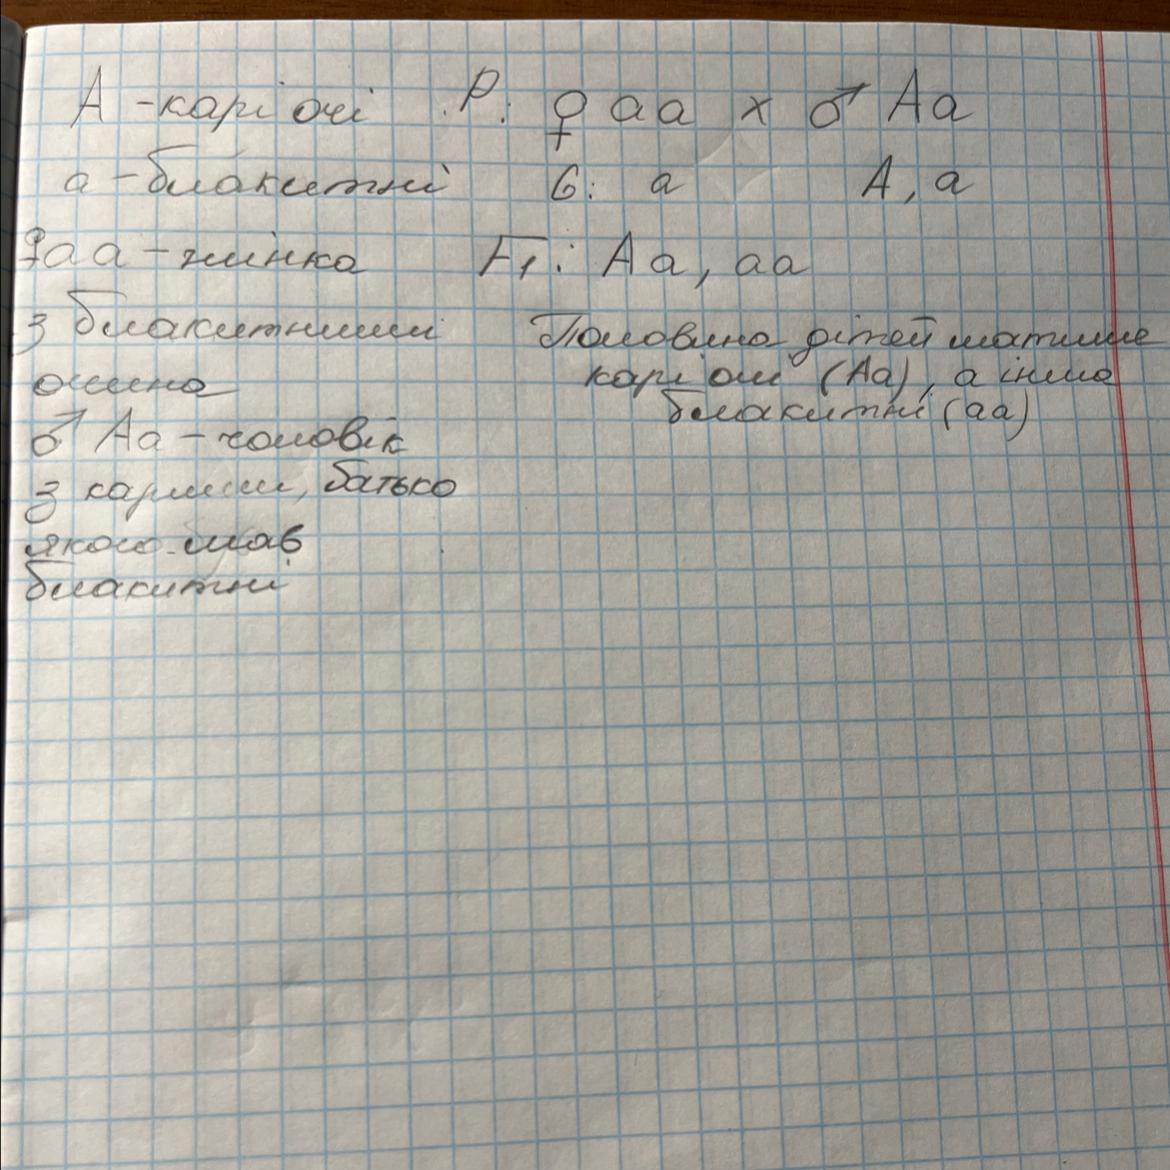 А - карі очі
а - блакитні
♀ аа - жінка
з блакитними
очима
♂ Аа - чоловік
з карими, батько
якого мав
блакитні
P: ♀ аа x ♂ Аа
G: а А, а
F1: Аа, аа
Половина дітей матиме
карі очі (Аа), а інша
блакитні (аа)